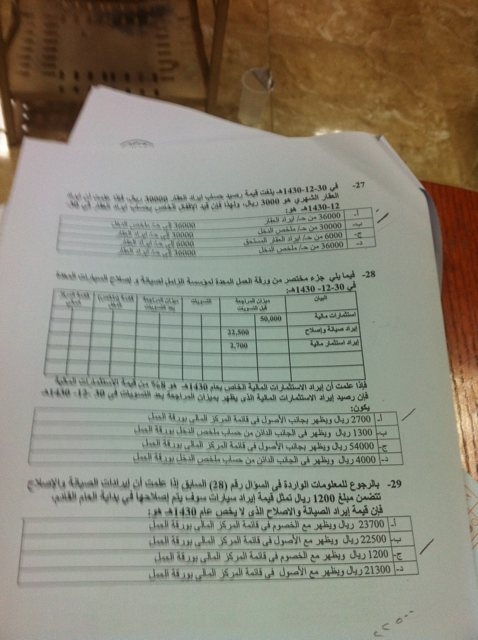 27- في 30-12-1430هـ بلغت قيمة رصيد حساب إيراد العقار 30000 ريال، فإذا علمت أن إيراد
العقار الشهري هو 3000 ريال، ولهذا فإن قيد الإقفال الخاص بحساب إيراد العقار في 30-
12-1430هـ هو:
أ- 36000 من حـ/ إيراد العقار 36000 إلى حـ/ ملخص الدخل
ب- 30000 من حـ/ ملخص الدخل 30000 إلى حـ/ إيراد العقار
ج- 6000 من حـ/ إيراد العقار المستحق 6000 إلى حـ/ إيراد العقار
د- 36000 من حـ/ ملخص الدخل 36000 إلى حـ/ إيراد العقار
28- فيما يلي جزء مختصر من ورقة العمل المعدة لمؤسسة الزامل لصيانة و إصلاح السيارات المعدة
في 30-12-1430هـ:
البيان ميزان المراجعة قبل التسويات التسويات ميزان المراجعة بعد التسويات
استثمارات مالية 50,000
إيراد صيانة وإصلاح 22,500
إيراد استثمار مالية 2,700
فإذا علمت أن إيراد الاستثمارات المالية الخاص بعام 1430هـ هو 8% من قيمة الاستثمارات المالية
فإن رصيد إيراد الاستثمارات المالية الذي يظهر بميزان المراجعة بعد التسويات في 30-12-1430هـ
يكون:
أ- 2700 ريال ويظهر بجانب الأصول في قائمة المركز المالي بورقة العمل
ب- 1300 ريال ويظهر في الجانب الدائن من حساب ملخص الدخل بورقة العمل
ج- 54000 ريال ويظهر بجانب الأصول في قائمة المركز المالي بورقة العمل
د- 4000 ريال ويظهر في الجانب الدائن من حساب ملخص الدخل بورقة العمل
29- بالرجوع للمعلومات الواردة في السؤال رقم (28) السابق إذا علمت أن إيرادات الصيانة والإصلاح
تتضمن مبلغ 1200 ريال تمثل قيمة إيراد سيارات سوف يتم إصلاحها في بداية العام القادم،
فإن قيمة إيراد الصيانة والاصلاح الذي لا يخص عام 1430هـ هو:
أ- 23700 ريال ويظهر مع الخصوم في قائمة المركز المالي بورقة العمل
ب- 22500 ريال ويظهر مع الأصول في قائمة المركز المالي بورقة العمل
ج- 1200 ريال ويظهر مع الخصوم في قائمة المركز المالي بورقة العمل
د- 21300 ريال ويظهر مع الأصول في قائمة المركز المالي بورقة العمل